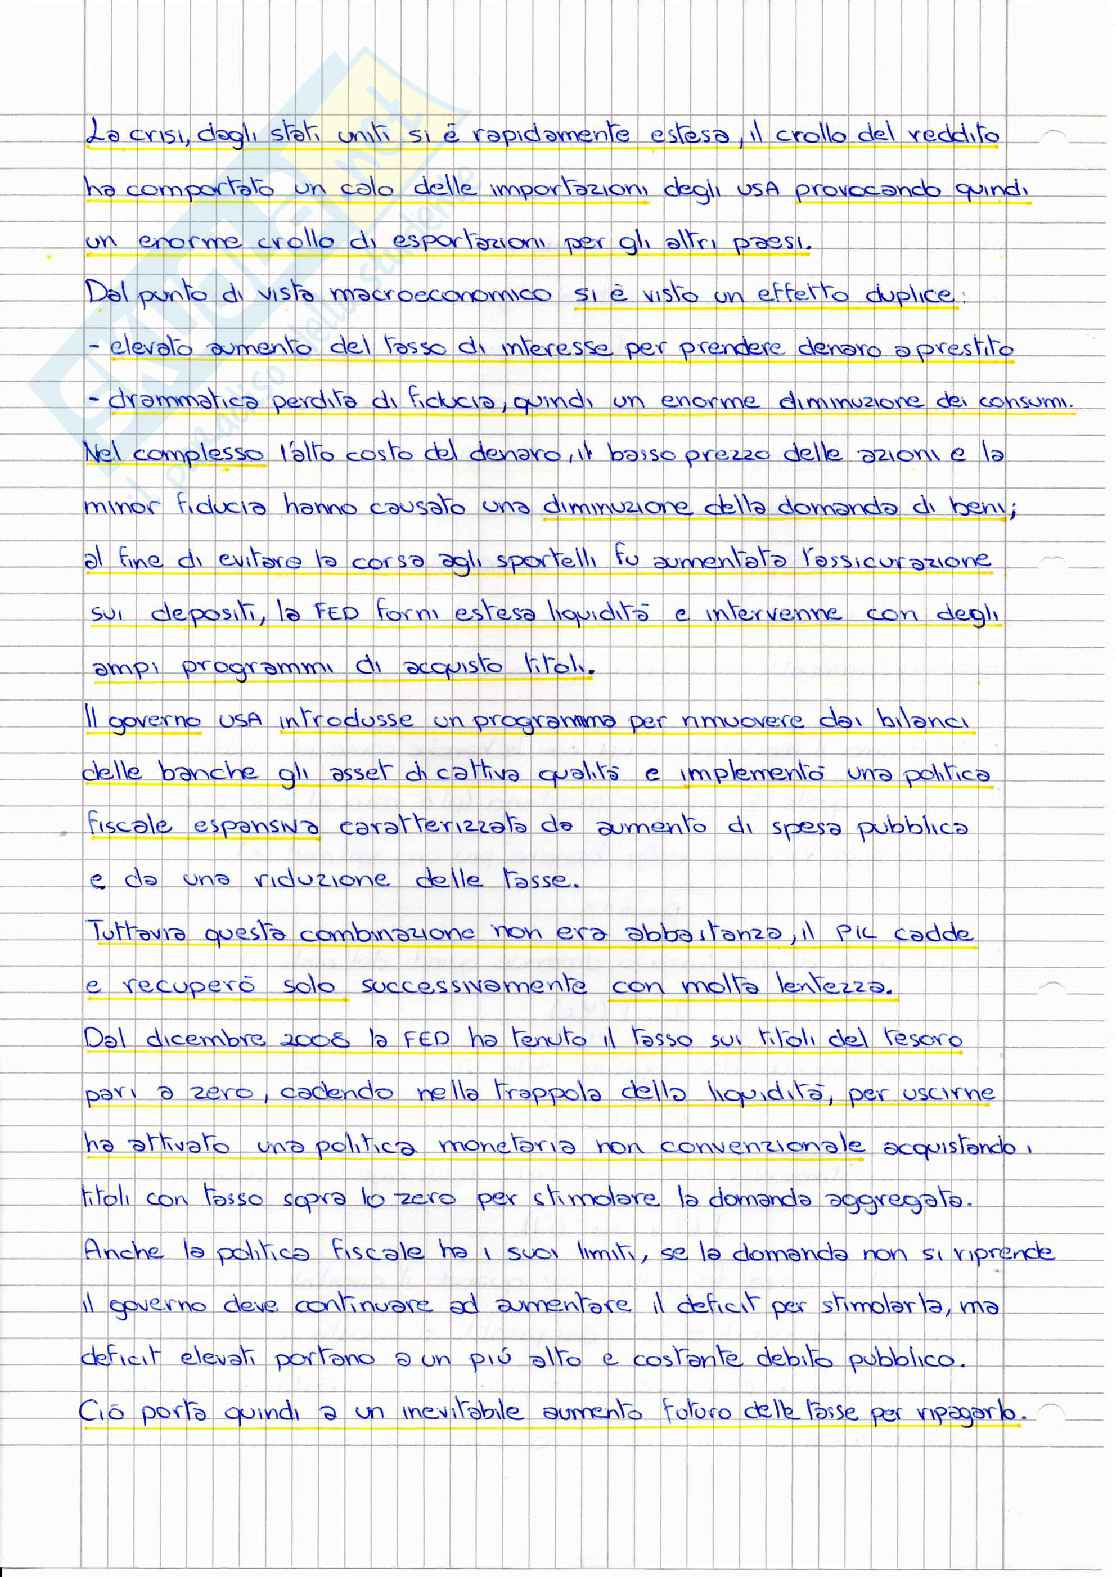 La crisi, dagli stati uniti si è rapidamente estesa, il crollo del reddito
ha comportato un calo delle importazioni degli USA provocando quindi
un enorme crollo di esportazioni per gli altri paesi.
Dal punto di vista macroeconomico si è visto un effetto duplice:
- elevato aumento del tasso di interesse per prendere denaro a prestito
- drammatica perdita di fiducia, quindi un enorme diminuzione dei consumi.
Nel complesso l'alto costo del denaro, il basso prezzo delle azioni e la
minor fiducia hanno causato una diminuzione della domanda di beni;
al fine di evitare la corsa agli sportelli fu aumentata l'assicurazione
sui depositi, la FED fornì estesa liquidità e intervenne con degli
ampi programmi di acquisto titoli.
Il governo USA introdusse un programma per rimuovere dai bilanci
delle banche gli asset di cattiva qualità e implementò una politica
fiscale espansiva caratterizzata da aumento di spesa pubblica
e da una riduzione delle tasse.
Tuttavia questa combinazione non era abbastanza, il PIL cadde
e recuperò solo successivamente con molta lentezza.
Dal dicembre 2008 la FED ha tenuto il tasso sui titoli del tesoro
pari a zero, cadendo nella trappola della liquidità, per uscirne
ha attivato una politica monetaria non convenzionale acquistando i
titoli con tasso sopra lo zero per stimolare la domanda aggregata.
Anche la politica fiscale ha i suoi limiti, se la domanda non si riprende
il governo deve continuare ad aumentare il deficit per stimolarla, ma
deficit elevati portano a un più alto e costante debito pubblico.
Ciò porta quindi a un inevitabile aumento futuro delle tasse per ripagarlo.